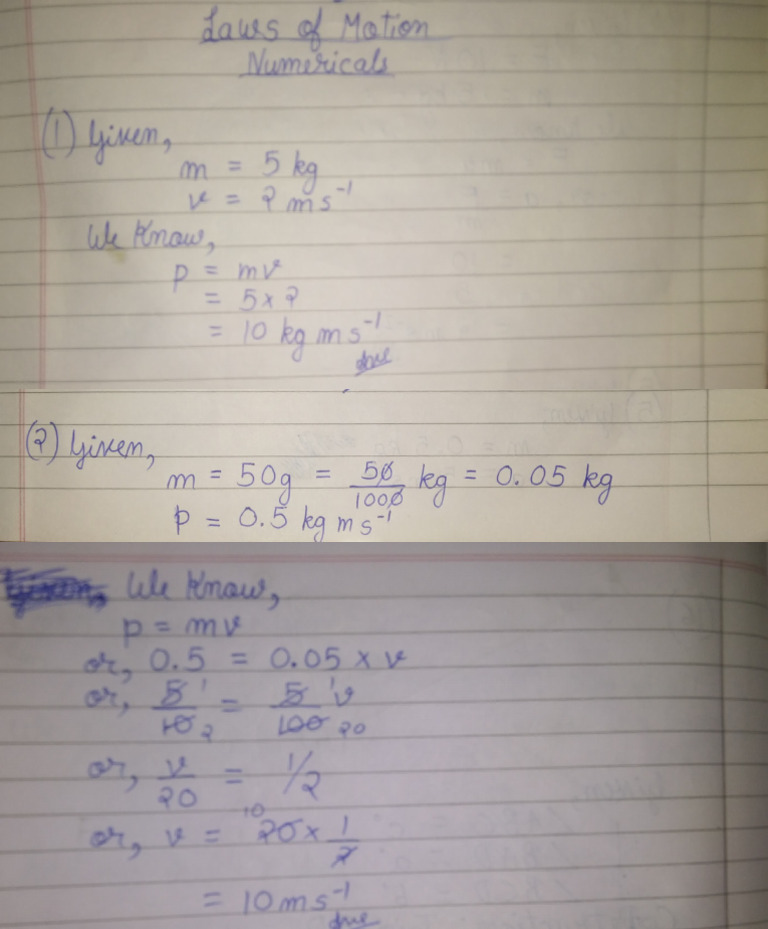 Laws of Motion
Numericals
(1) Given,
m = 5 kg
v = 2 ms⁻¹
We Know,
p = mv
= 5 × 2
= 10 kg m s⁻¹
(2) Given,
m = 50g = 50/1000 kg = 0.05 kg
p = 0.5 kg m s⁻¹
We Know,
p = mv
or, 0.5 = 0.05 × v
or, 5 1/10 2 = 5 1 v/100 20
or, v/20 = 1/2
or, v = 10 20 × 1/2
= 10 m s⁻¹